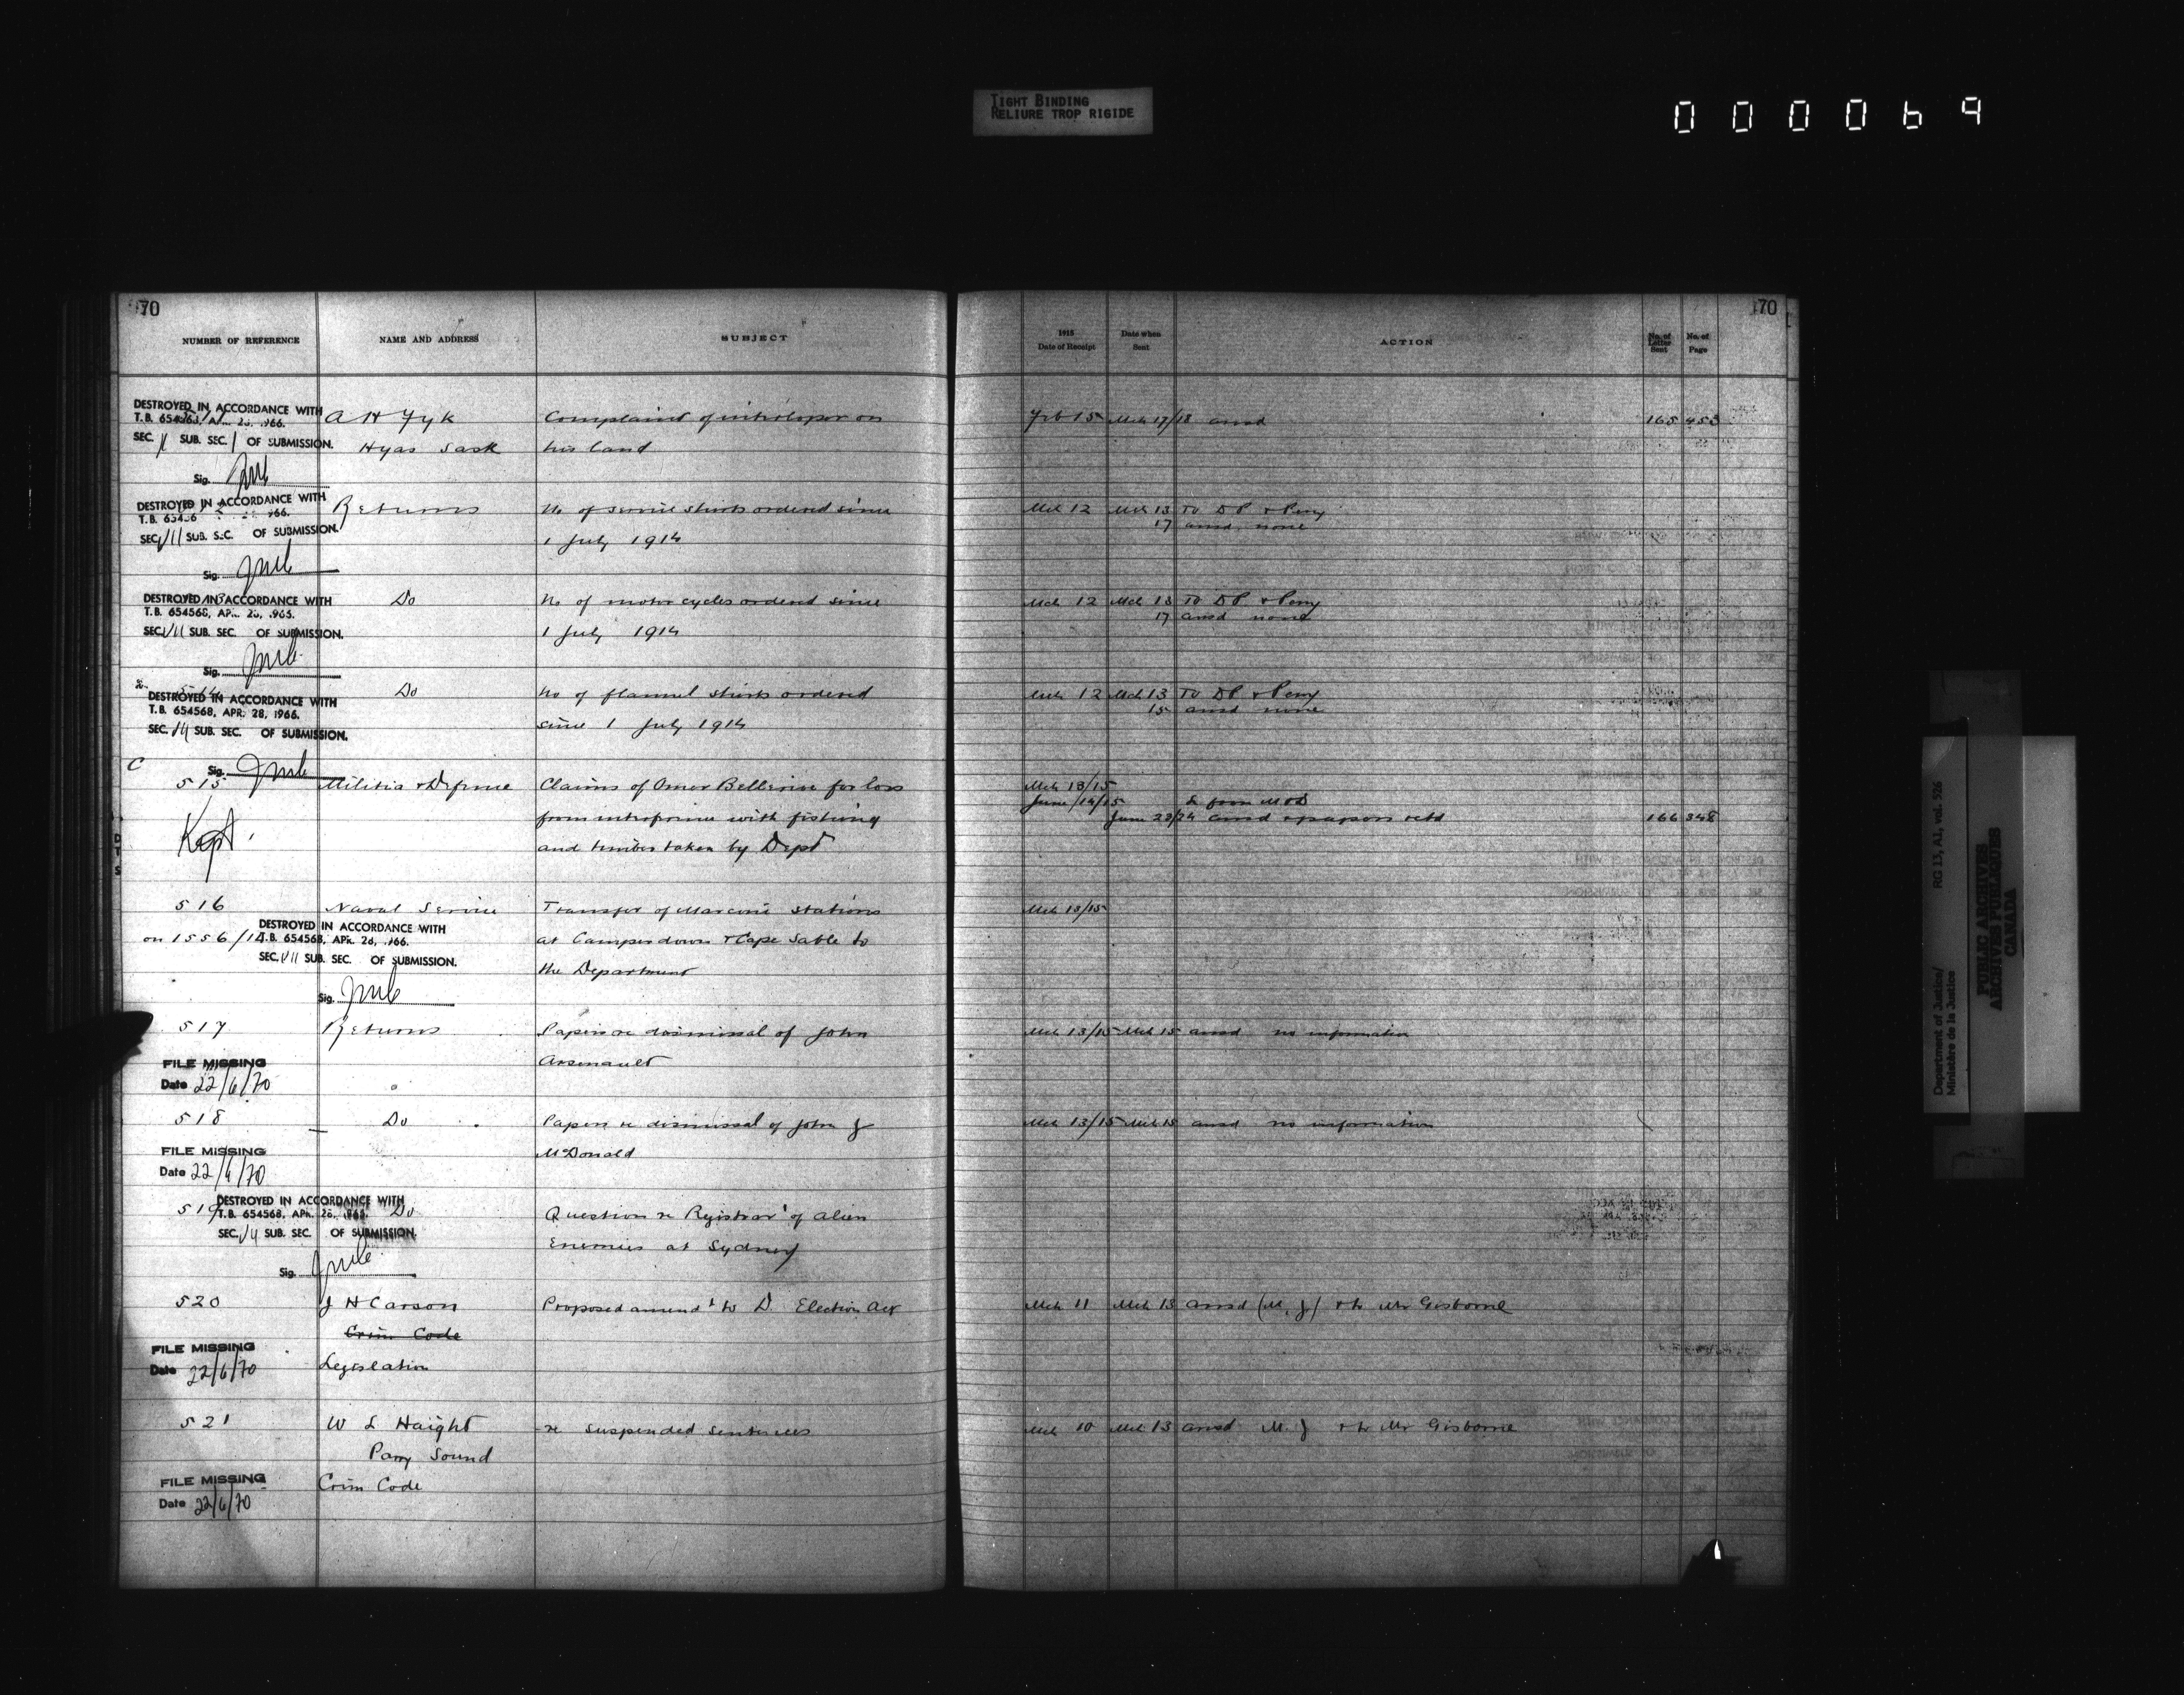 TIGHT BINDING
RELIURE TROP RIGIDE
000069
70
NUMBER OF REFERENCE NAME AND ADDRESS SUBJECT
DESTROYED IN ACCORDANCE WITH
T.B. 654563
SEC. SUB. SEC. OF SUBMISSION.
Sig.
A H Fyk
Hyas Sask
Complaint of interloper on
his land
DESTROYED IN ACCORDANCE WITH
T.B.
SEC. VII SUB. SEC. OF SUBMISSION.
Sig.
Returns
No of service shirts ordered since
1 July 1914
DESTROYED IN ACCORDANCE WITH
T.B. 654568, APR. 28, 1966.
SEC. VII SUB. SEC. OF SUBMISSION.
Sig.
Do
No of motor cycles ordered since
1 July 1914
DESTROYED IN ACCORDANCE WITH
T.B. 654568, APR. 28, 1966.
SEC. SUB. SEC. OF SUBMISSION.
Sig.
Do
No of flannel shirts ordered
since 1 July 1914
C
515
Kept
Militia & Defence
Claims of Omer Bellerive for loss
from interference with fishing
and timber taken by Dept
516
on 1556/14
DESTROYED IN ACCORDANCE WITH
T.B. 654568, APR. 28, 1966.
SEC. VII SUB. SEC. OF SUBMISSION.
Sig.
Naval Service
Transfer of Marconi stations
at Camperdown & Cape Sable to
the Department
517
FILE MISSING
Date 22/6/70
Returns
Papers re dismissal of John
Arsenault
518
FILE MISSING
Date 22/6/70
Do
Papers re dismissal of John J
McDonald
519
DESTROYED IN ACCORDANCE WITH
T.B. 654568, APR. 28, 1966.
SEC. SUB. SEC. OF SUBMISSION.
Sig.
Do
Question re Registrar of alien
Enemies at Sydney
520
FILE MISSING
Date 22/6/70
J H Carson
Crim Code
Legislation
Proposed amendt to D. Election Act
521
FILE MISSING
Date 22/6/70
W L Haight
Parry Sound
Crim Code
re suspended sentences
70
1915
Date of Receipt
Date when
Sent
ACTION
No. of
Letter
Sent
No. of
Page
Feb 15 Mch 17/18 ansd 165 453
Mch 12 Mch 13 To DP & Perry
17 ansd none
Mch 12 Mch 13 To DP & Perry
17 ansd none
Mch 12 Mch 13 To DP & Perry
15 ansd none
Mch 13/15
June/14/15 L from M & D
June 23/24 ansd & papers retd 166 348
Mch 13/15
Mch 13/15 Mch 15 ansd no information
Mch 13/15 Mch 15 ansd no information
Mch 11 Mch 13 ansd (M. J) & to Mr Gisborne
Mch 10 Mch 13 ansd M. J & to Mr Gisborne
Department of Justice/
Ministère de la Justice
RG 13, A1, vol. 526
PUBLIC ARCHIVES
ARCHIVES PUBLIQUES
CANADA